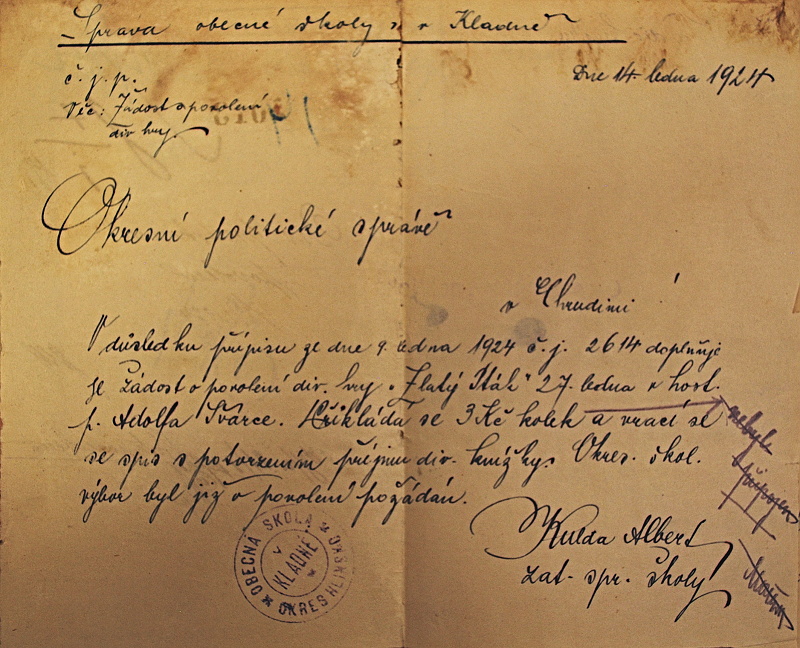 Správa obecné školy v Kladně
Dne 14. ledna 1924
č. j. p.
Věc: Žádost o povolení
div. hry.
Okresní politické správě
v Chrudimi
V důsledku přípisu ze dne 9. ledna 1924 č. j. 2614 doplňuje
se žádost o povolení div. hry „Zlatý Pták" 27. ledna v host.
p. Adolfa Švárce. Přikládá se 3 Kč kolek a vrací se
se spis s potvrzením příjmu div. knížky. Okres. škol.
výbor byl již o povolení požádán.
nebyl
připojen
Kulda Albert
zat. spr. školy
OBECNÁ ŠKOLA
V
KLADNĚ
OKRES HLINSKO